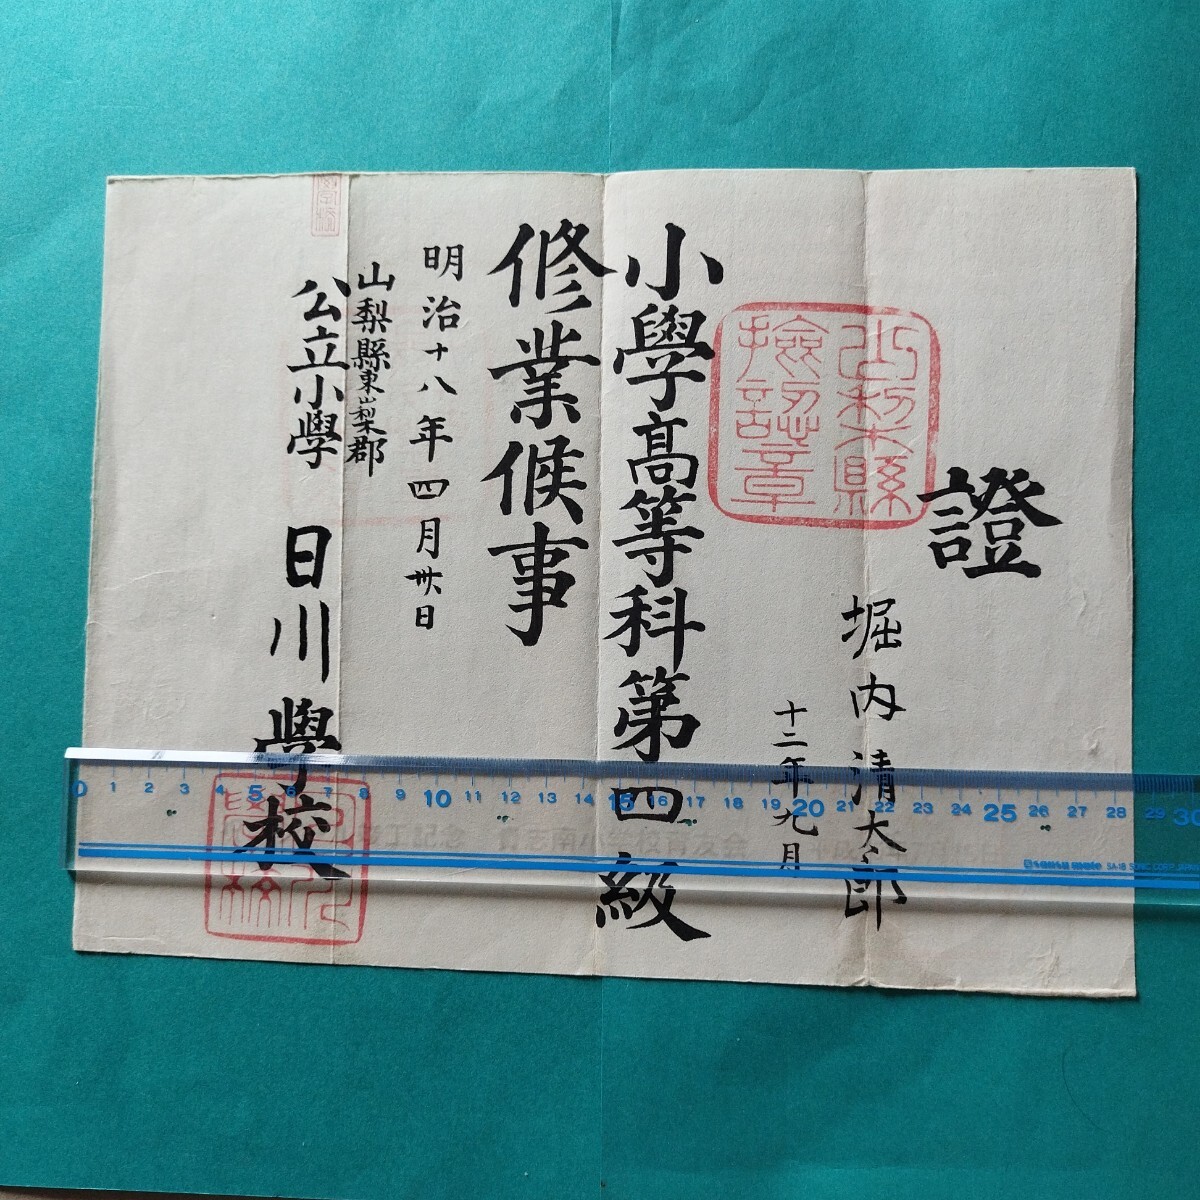 證
堀内清太郎
十二年九月
山梨縣
撿認章
小學高等科第四級
修業候事
明治十八年四月卅日
山梨縣東山梨郡
公立小學 日川學校
0 1 2 3 4 5 6 7 8 9 10 11 12 13 14 15 16 17 18 19 20 21 22 23 24 25 26 27 28 29 30
工記念